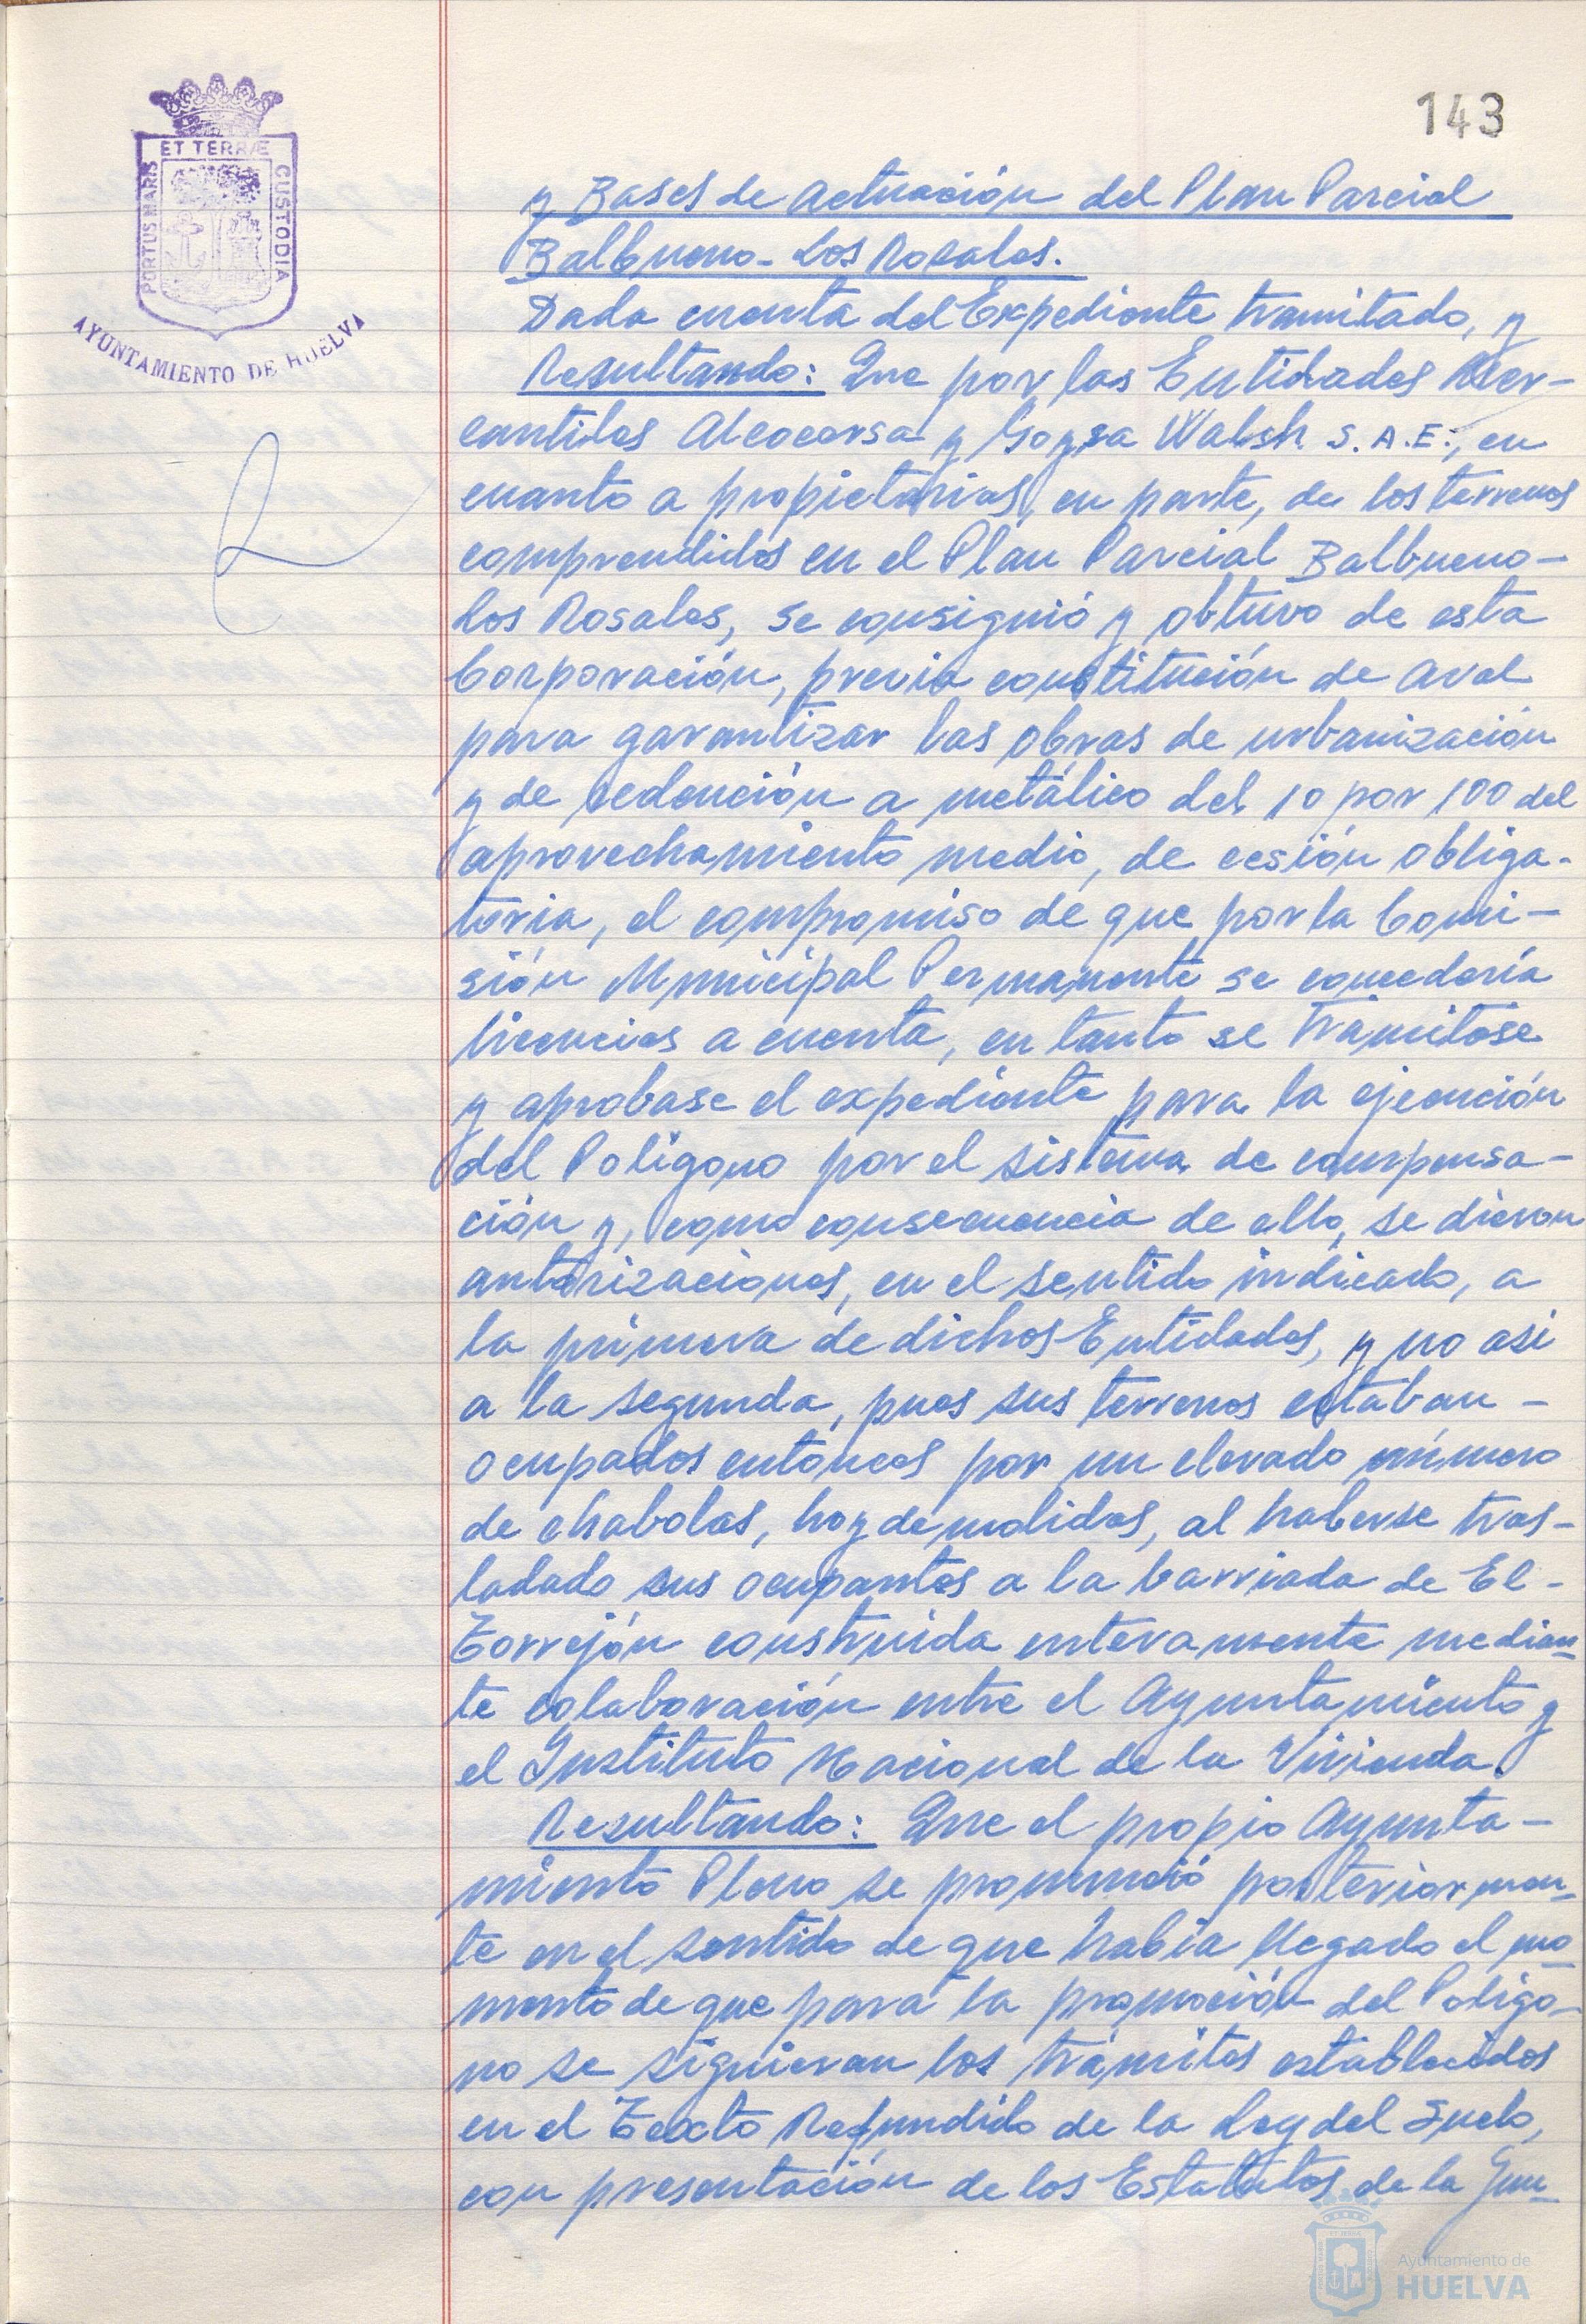 143
ET TERRÆ
PORTUS MARIS
CUSTODIA
AYUNTAMIENTO DE HUELVA
y Bases de Actuación del Plan Parcial
Balbueno-Los Rosales.
Dada cuenta del Expediente tramitado, y
Resultando: Que por las Entidades Mer-
cantiles Alcocersa y Goysa Walsh S.A.E., en
cuanto a propietarias, en parte, de los terrenos
comprendidos en el Plan Parcial Balbueno-
Los Rosales, se consiguió y obtuvo de esta
Corporación, previa constitución de aval
para garantizar las obras de urbanización
y de redención a metálico del 10 por 100 del
aprovechamiento medio, de cesión obliga-
toria, el compromiso de que por la Comi-
sión Municipal Permanente se concedería
licencias a cuenta, en tanto se tramitase
y aprobase el expediente para la ejecución
del Polígono por el sistema de compensa-
ción y, como consecuencia de ello, se dieron
autorizaciones, en el sentido indicado, a
la primera de dichas Entidades, y no así
a la segunda, pues sus terrenos estaban -
ocupados entonces por un elevado número
de chabolas, hoy demolidas, al haberse tras-
ladado sus ocupantes a la barriada de El -
Torrejón construida enteramente median-
te colaboración entre el Ayuntamiento y
el Instituto Nacional de la Vivienda.
Resultando: Que el propio Ayunta-
miento Pleno se pronunció posteriormen-
te en el sentido de que había llegado el mo-
mento de que para la promoción del Polígo-
no se siguieran los trámites establecidos
en el Texto Refundido de la Ley del Suelo,
con presentación de los Estatutos de la Jun-
Ayuntamiento de
HUELVA